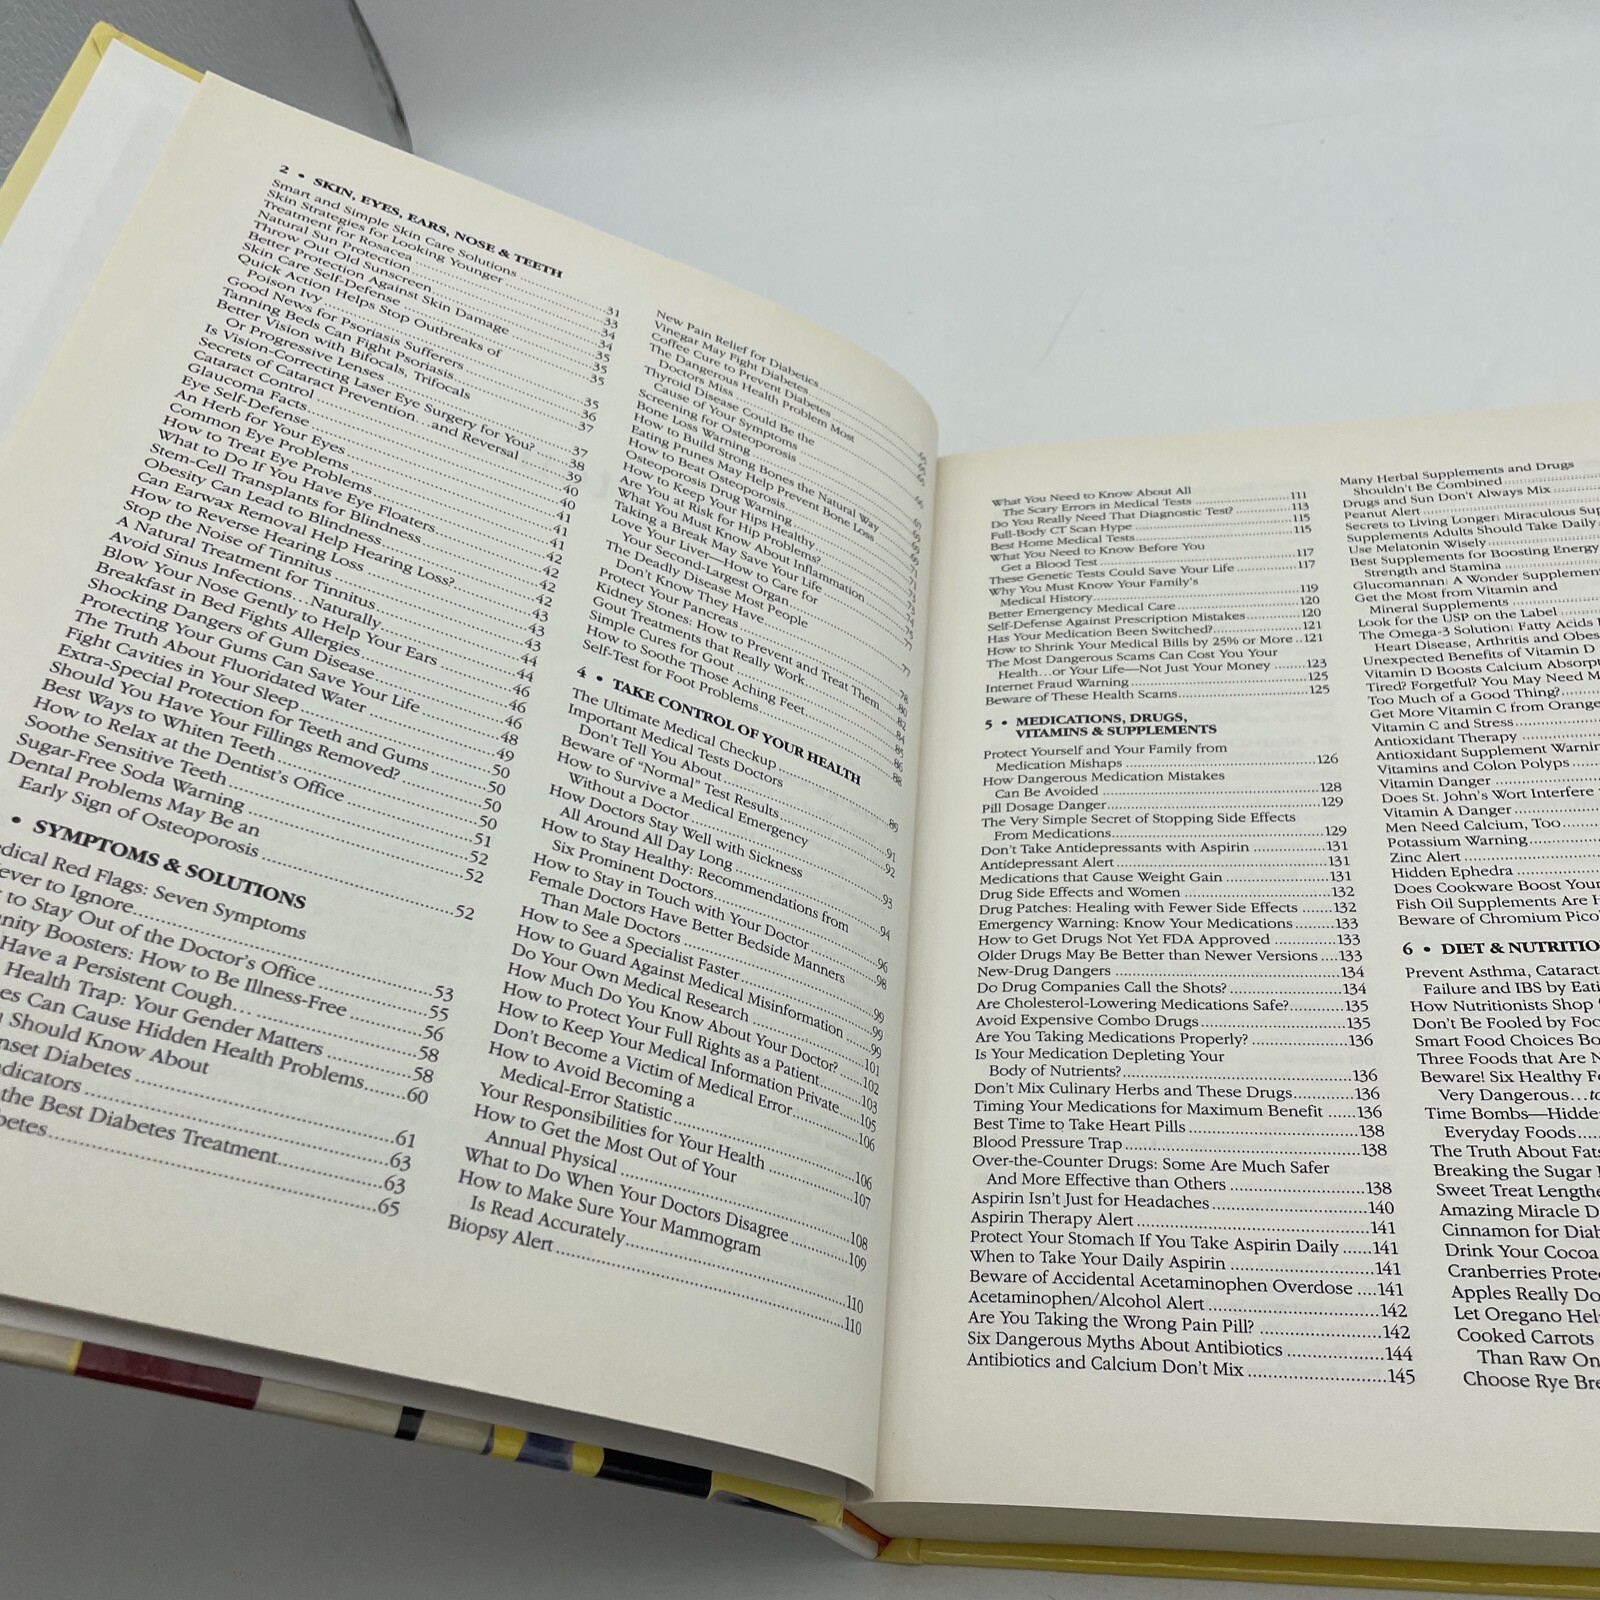 2 • SKIN, EYES, EARS, NOSE & TEETH
Smart and Simple Skin Care Solutions ...31
Skin Strategies for Looking Younger ...33
Treatment for Rosacea ...34
Natural Sun Protection ...34
Throw Out Old Sunscreen ...35
Better Protection Against Skin Damage ...35
Skin Care Self-Defense ...35
Quick Action Helps Stop Outbreaks of
Poison Ivy
Good News for Psoriasis Sufferers
Tanning Beds Can Fight Psoriasis
Better Vision with Bifocals, Trifocals
Or Progressive Lenses
Is Vision-Correcting Laser Eye Surgery for You?
Secrets of Cataract Prevention...and Reversal
Cataract Control
Glaucoma Facts
Eye Self-Defense
An Herb for Your Eyes
Common Eye Problems
How to Treat Eye Problems
What to Do If You Have Eye Floaters
Stem-Cell Transplants for Blindness
Obesity Can Lead to Blindness
Can Earwax Removal Help Hearing Loss?
How to Reverse Hearing Loss
Stop the Noise of Tinnitus
A Natural Treatment for Tinnitus
Avoid Sinus Infections...Naturally
Blow Your Nose Gently to Help Your Ears
Breakfast in Bed Fights Allergies
Shocking Dangers of Gum Disease
Protecting Your Gums Can Save Your Life
The Truth About Fluoridated Water
Fight Cavities in Your Sleep
Extra-Special Protection for Teeth and Gums
Should You Have Your Fillings Removed?
Best Ways to Whiten Teeth
How to Relax at the Dentist's Office
Soothe Sensitive Teeth
Sugar-Free Soda Warning
Dental Problems May Be an
Early Sign of Osteoporosis ...52
• SYMPTOMS & SOLUTIONS
Red Flags: Seven Symptoms
to Ignore ...53
to Stay Out of the Doctor's Office ...55
Boosters: How to Be Illness-Free ...56
Have a Persistent Cough... ...58
Health Trap: Your Gender Matters ...58
Can Cause Hidden Health Problems ...60
Should Know About
Diabetes ...61
...63
the Best Diabetes Treatment ...63
...65
New Pain Relief for Diabetics
Vinegar May Fight Diabetes
Coffee Cure to Prevent Diabetes
The Dangerous Health Problem Most
Doctors Miss
Thyroid Disease Could Be the
Cause of Your Symptoms
Screening for Osteoporosis
Bone Loss Warning
How to Build Strong Bones the Natural Way
Eating Prunes May Help Prevent Bone Loss
How to Beat Osteoporosis
Osteoporosis Drug Warning
How to Keep Your Hips Healthy
Are You at Risk for Hip Problems?
What You Must Know About Inflammation
Taking a Break May Save Your Life
Love Your Liver—How to Care for
Your Second-Largest Organ
The Deadly Disease Most People
Don't Know They Have
Protect Your Pancreas
Kidney Stones: How to Prevent and Treat Them
Gout Treatments that Really Work
Simple Cures for Gout
How to Soothe Those Aching Feet
Self-Test for Foot Problems
4 • TAKE CONTROL OF YOUR HEALTH
The Ultimate Medical Checkup ...89
Important Medical Tests Doctors
Don't Tell You About ...91
Beware of "Normal" Test Results ...92
How to Survive a Medical Emergency
Without a Doctor ...93
How Doctors Stay Well with Sickness
All Around All Day Long ...94
How to Stay Healthy: Recommendations from
Six Prominent Doctors ...96
How to Stay in Touch with Your Doctor ...98
Female Doctors Have Better Bedside Manners
Than Male Doctors ...99
How to See a Specialist Faster ...99
How to Guard Against Medical Misinformation ...99
Do Your Own Medical Research ...101
How Much Do You Know About Your Doctor? ...102
How to Protect Your Full Rights as a Patient ...103
How to Keep Your Medical Information Private ...105
Don't Become a Victim of Medical Error ...106
How to Avoid Becoming a
Medical-Error Statistic ...106
Your Responsibilities for Your Health ...107
How to Get the Most Out of Your
Annual Physical ...108
What to Do When Your Doctors Disagree ...109
How to Make Sure Your Mammogram
Is Read Accurately ...110
Biopsy Alert ...110
What You Need to Know About All
The Scary Errors in Medical Tests ...111
Do You Really Need That Diagnostic Test? ...113
Full-Body CT Scan Hype ...115
Best Home Medical Tests ...115
What You Need to Know Before You
Get a Blood Test ...117
These Genetic Tests Could Save Your Life ...117
Why You Must Know Your Family's
Medical History ...119
Better Emergency Medical Care ...120
Self-Defense Against Prescription Mistakes ...120
Has Your Medication Been Switched? ...121
How to Shrink Your Medical Bills by 25% or More ..121
The Most Dangerous Scams Can Cost You Your
Health...or Your Life—Not Just Your Money ...123
Internet Fraud Warning ...125
Beware of These Health Scams ...125
5 • MEDICATIONS, DRUGS,
VITAMINS & SUPPLEMENTS
Protect Yourself and Your Family from
Medication Mishaps ...126
How Dangerous Medication Mistakes
Can Be Avoided ...128
Pill Dosage Danger ...129
The Very Simple Secret of Stopping Side Effects
From Medications ...129
Don't Take Antidepressants with Aspirin ...131
Antidepressant Alert ...131
Medications that Cause Weight Gain ...131
Drug Side Effects and Women ...132
Drug Patches: Healing with Fewer Side Effects ...132
Emergency Warning: Know Your Medications ...133
How to Get Drugs Not Yet FDA Approved ...133
Older Drugs May Be Better than Newer Versions ...133
New-Drug Dangers ...134
Do Drug Companies Call the Shots? ...134
Are Cholesterol-Lowering Medications Safe? ...135
Avoid Expensive Combo Drugs ...135
Are You Taking Medications Properly? ...136
Is Your Medication Depleting Your
Body of Nutrients? ...136
Don't Mix Culinary Herbs and These Drugs ...136
Timing Your Medications for Maximum Benefit ...136
Best Time to Take Heart Pills ...138
Blood Pressure Trap ...138
Over-the-Counter Drugs: Some Are Much Safer
And More Effective than Others ...138
Aspirin Isn't Just for Headaches ...140
Aspirin Therapy Alert ...141
Protect Your Stomach If You Take Aspirin Daily ...141
When to Take Your Daily Aspirin ...141
Beware of Accidental Acetaminophen Overdose ...141
Acetaminophen/Alcohol Alert ...142
Are You Taking the Wrong Pain Pill? ...142
Six Dangerous Myths About Antibiotics ...144
Antibiotics and Calcium Don't Mix ...145
Many Herbal Supplements and Drugs
Shouldn't Be Combined
Drugs and Sun Don't Always Mix
Peanut Alert
Secrets to Living Longer: Miraculous
Supplements Adults Should Take Daily
Use Melatonin Wisely
Best Supplements for Boosting Energy
Strength and Stamina
Glucomannan: A Wonder Supplement
Get the Most from Vitamin and
Mineral Supplements
Look for the USP on the Label
The Omega-3 Solution: Fatty Acids
Heart Disease, Arthritis and
Unexpected Benefits of Vitamin D
Vitamin D Boosts Calcium
Tired? Forgetful? You May Need
Too Much of a Good Thing?
Get More Vitamin C from
Vitamin C and Stress
Antioxidant Therapy
Antioxidant Supplement
Vitamins and Colon Polyps
Vitamin Danger
Does St. John's Wort Interfere
Vitamin A Danger
Men Need Calcium, Too
Potassium Warning
Zinc Alert
Hidden Ephedra
Does Cookware Boost Your
Fish Oil Supplements Are
Beware of Chromium
6 • DIET &
Prevent Asthma,
Failure and IBS by
How Nutritionists Shop
Don't Be Fooled by
Smart Food Choices
Three Foods that Are
Beware! Six Healthy
Very Dangerous...
Time Bombs—
Everyday Foods
The Truth About
Breaking the Sugar
Sweet Treat
Amazing Miracle
Cinnamon for
Drink Your Cocoa
Cranberries
Apples Really
Let Oregano
Cooked Carrots
Than Raw
Choose Rye